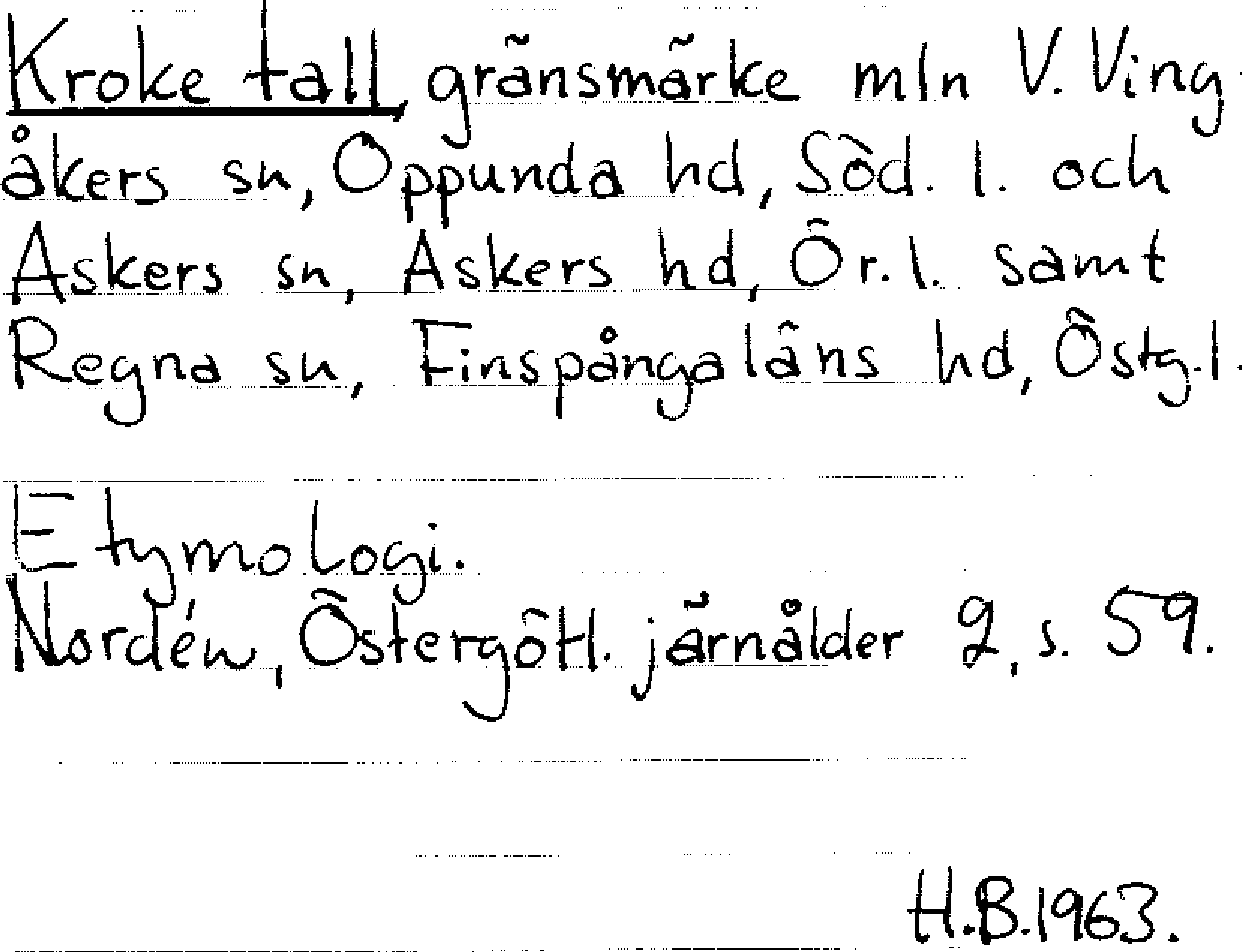 Kroke tall gränsmärke mln V. Ving-
åkers sn, Oppunda hd, Söd. l. och
Askers sn, Askers hd, Ör. l. samt
Regna sn, Finspångaläns hd, Östg. l.
Etymologi.
Nordén, Östergötl. järnålder 2, s. 59.
H.B. 1963.